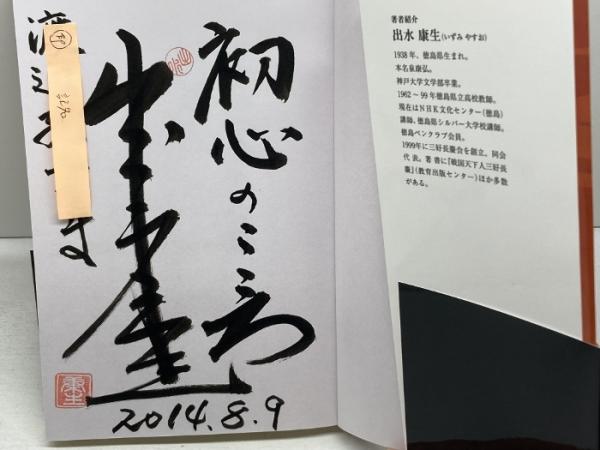 初心のこころ
2014.8.9
康生
著者紹介
出水 康生(いずみ やすお)
1938年、徳島県生まれ。
本名泉康弘。
神戸大学文学部卒業。
1962〜99年徳島県立高校教師。
現在はNHK文化センター(徳島)
講師、徳島県シルバー大学校講師。
徳島ペンクラブ会員。
1999年に三好長慶会を創立。同会
代表。著書に『戦国天下人三好長
慶』(教育出版センター)ほか多数
がある。